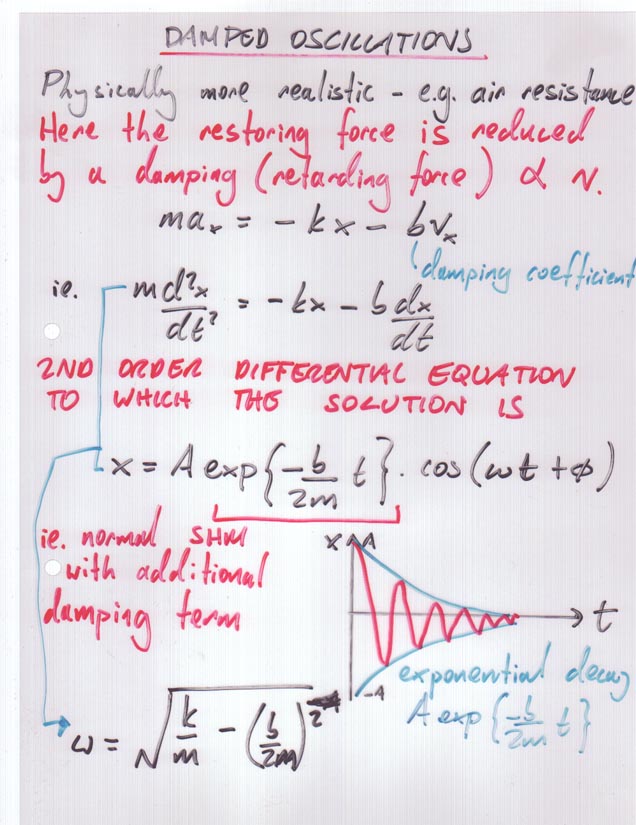 DAMPED OSCILLATIONS
Physically more realistic - e.g. air resistance
Here the restoring force is reduced
by a damping (retarding force) ∝ v.
ma_x = -kx - bv_x
damping coefficient
ie. m d²x/dt² = -kx - b dx/dt
2ND ORDER DIFFERENTIAL EQUATION
TO WHICH THE SOLUTION IS
x = A exp{-b/2m t}. cos(ωt + φ)
ie. normal SHM
with additional
damping term
x A
t
-A
exponential decay
A exp{-b/2m t}
ω = √(k/m - (b/2m)²)